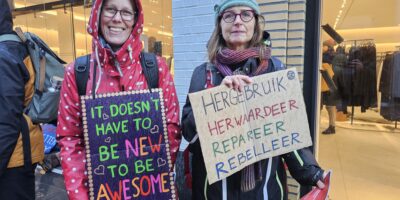 IT DOESN'T
HAVE TO
BE NEW
TO BE
AWESOME
HERGEBRUIK
HERWAARDEER
REPAREER
REBELLEER